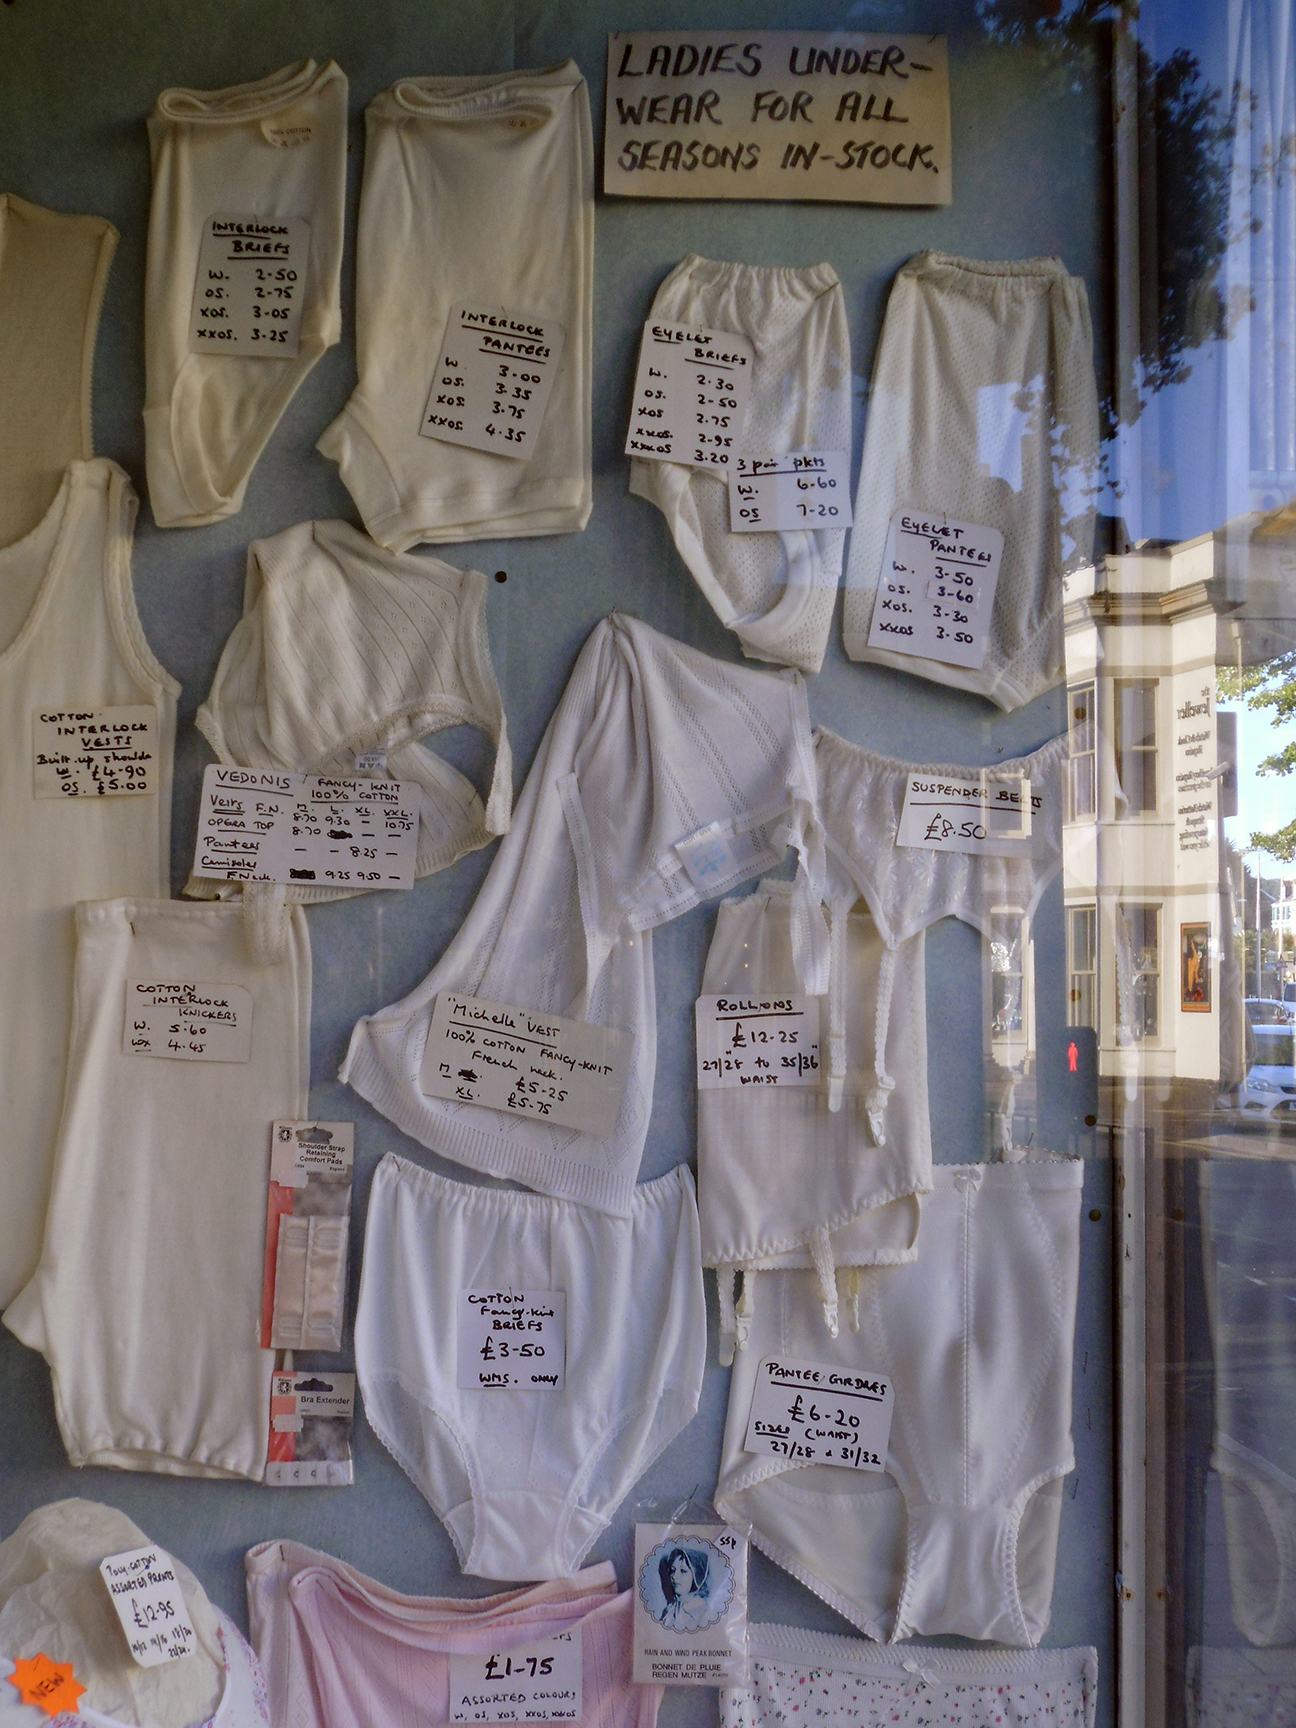 LADIES UNDER-
WEAR FOR ALL
SEASONS IN-STOCK.
100% COTTON
INTERLOCK
BRIEFS
W. 2-50
OS. 2-75
XOS. 3-05
XXOS. 3-25
INTERLOCK
PANTEES
W. 3-00
OS. 3-35
XOS. 3-75
XXOS. 4-35
EYELET
BRIEFS
W. 2-30
OS. 2-50
XOS 2-75
XXOS. 2-95
XXXOS 3-20
3 pair pkts
W. 6-60
OS 7-20
EYELET
PANTEES
W. 3-50
OS. 3-60
XOS. 3-30
XXOS 3-50
COTTON
INTERLOCK
VESTS
Built-up shoulds
W. £4-90
OS. £5-00
VEDONIS FANCY-KNIT
100% COTTON
Vests F.N. M. L. XL. XXL.
8-70 9-30 — 10-75
OPERA TOP 8-70 — —
Pantees — — 8-25 —
Camisoles
F.Neck. 9-25 9-50 —
SUSPENDER BELTS
£8.50
The
Jeweller
COTTON
INTERLOCK
KNICKERS
W. 5-60
WX 4-45
"Michelle" VEST
100% COTTON FANCY-KNIT
French neck.
M £5-25
XL. £5-75
ROLL-ONS
£12-25
27/28" to 35/36"
WAIST
Shoulder Strap
Retaining
Comfort Pads
COTTON
Fancy-Knit
BRIEFS
£3-50
WMS. ONLY
Bra Extender
PANTEE GIRDLES
£6-20
SIZES (WAIST)
27/28 & 31/32
Poly-COTTON
ASSORTED PRINTS
£12-95
NEW
£1-75
ASSORTED COLOURS
W, OS, XOS, XXOS, XXXOS
55p
RAIN AND WIND PEAK BONNET
BONNET DE PLUIE
REGEN MUTZE